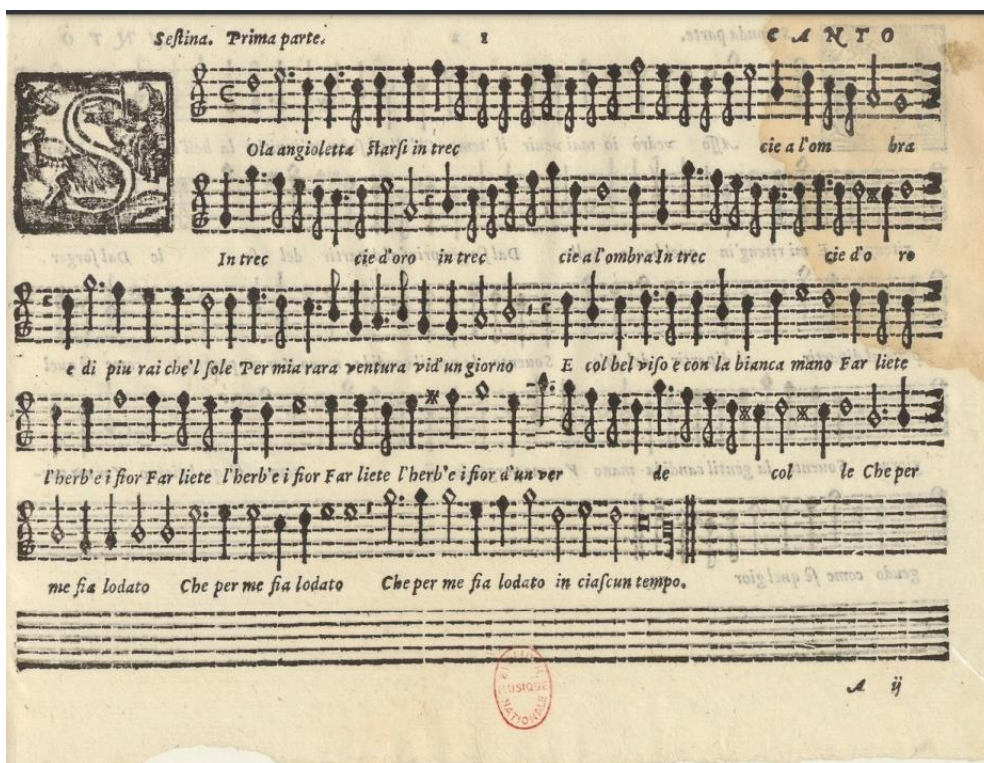 Seſtina. Prima parte. 1 CANTO
SOla angioletta ſtarſi in trec cie a l'om bra
In trec cie d'oro in trec cie a l'ombra In trec cie d'o ro
e di piu rai che'l ſole Per mia rara ventura vid'un giorno E col bel viſo e con la bianca mano Far liete
l'herb'e i fior Far liete l'herb'e i fior Far liete l'herb'e i fior d'un ver de col le Che per
me fia lodato Che per me fia lodato Che per me fia lodato in ciaſcun tempo.
MUSIQUE
NATIONALE
A ij